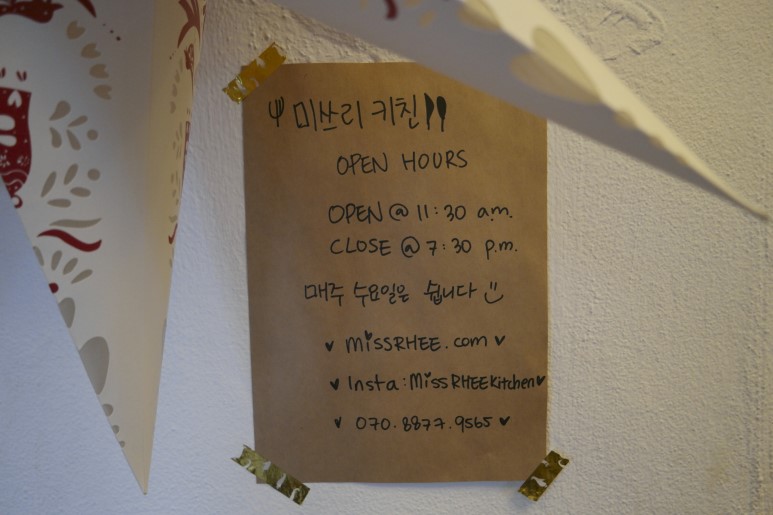 미쓰리 키친
OPEN HOURS
OPEN @ 11:30 a.m.
CLOSE @ 7:30 p.m.
매주 수요일은 쉽니다
missRHEE.com
Insta:MissRHEEKitchen
070.8877.9565